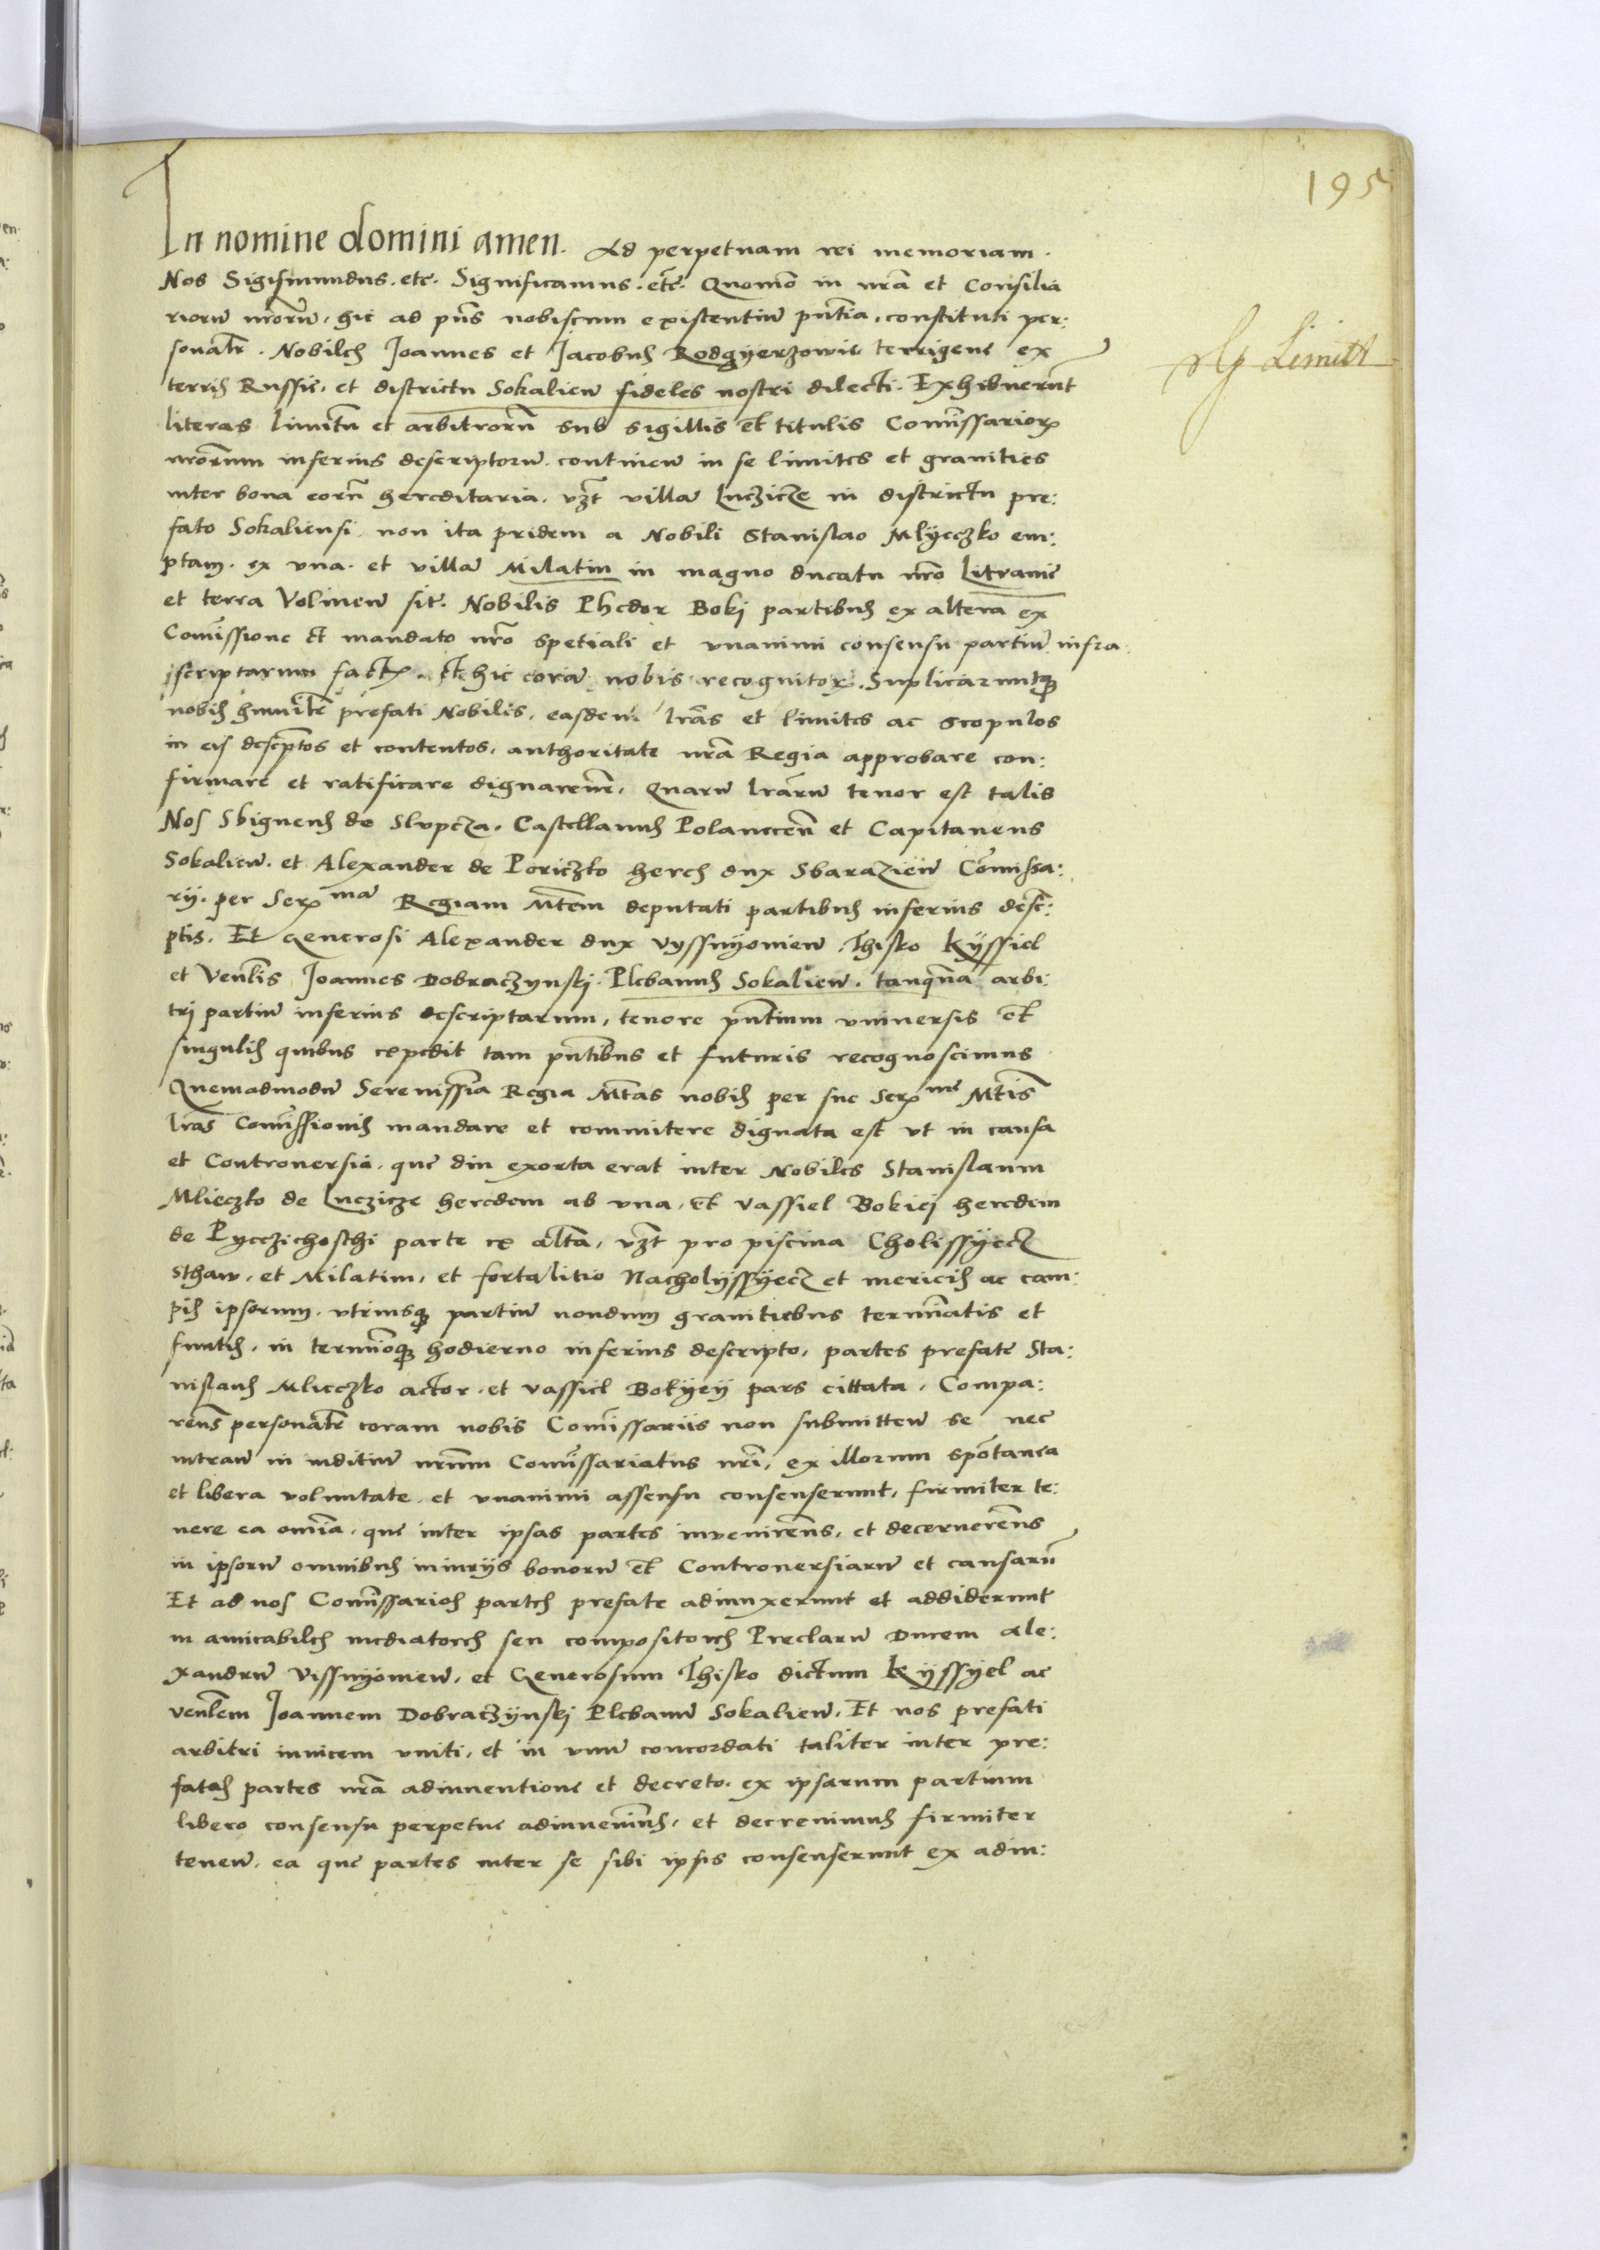 195
In nomine domini amen. Ad perpetuam rei memoriam.
Nos Sigismundus. etc. Significamus. etc. Quomo in nrã et Consilia
riorũ nrorũ, hic ad pñs nobiscum existentiũ pñtia, constituti per:
sonalr. Nobiles Joannes et Jacobus Rodgyerzowie terrigene ex
terris Russie, et districtu Sokalieñ fideles nostri dilecti. Exhibuerũt
Limit
literas limitũ et arbitrorũ sub sigillis et titulis Comissarior
nrorum inferius descriptorũ. continen in se limites et granities
inter bona eorũ hereditaria. vzt villã Luczicze in districtu pre:
fato Sokaliensi. non ita pridem a Nobili Stanislao Mlyeczko em:
ptam. ex vna. et villã Milatin in magno ducatu nro Litvanie
et terra Volineñ sit. Nobilis Phedor Boki partibus ex altera ex
Comissione et mandato nro spetiali et vnanimi consensu partiũ infra
scriptarum fact. et hic corã nobis recognitor. Suplicaruntq
nobis humilr prefati Nobiles. easdem lras et limites ac scopulos
in eis descptos et contentos, authoritate nrã Regia approbare con:
firmare et ratificare dignaremr. Quarũ lrarũ tenor est talis
Nos Sbigneus de Slupcza. Castellanus Polanecen et Capitaneus
Sokalieñ. et Alexander de Poriczko heres dux Sbarazieñ Comissa:
rij. per Ser ma Regiam Mtem deputati partibus inferius desc:
ptis. Et Generosi Alexander dux Vyssnyovieñ. Thisko Kyssiel
et Venlis Joannes Dobraczynski Plebanus Sokalieñ. tanqua arbi
tri partiũ inferius descriptarum, tenore pñtium vniversis et
singulis quibus expedit tam pñtibus et futuris recognoscimus
Quemadmodũ Serenissima Regia Mtas nobis per sue Ser me Mtis
lras Comissionis mandare et commitere dignata est vt in causa
et Controuersia. que diu exorta erat inter Nobiles Stanislaum
Mlieczko de Luczicze heredem ab vna, et Vassiel Bokiej heredem
de Pyeczichosthi parte ex altã, vzt pro piscina Cholissyecz
sthaw, et Milatim, et fortalitio Nacholyssyecz et mericis ac cam:
pis ipsorum. vtriusq partiũ nondum granitiebus terminatis et
funtis, in terminoq hodierno inferius descripto, partes prefate Sta:
nislaus Mlieczko actor. et Vassiel Bokyey pars cittata. Compa:
rens personalr coram nobis Comissariis non submitten se nec
intran in iuditiũ nrum Comissariatus nri, ex illorum spontanea
et libera voluntate. et vnanimi assensu consenserunt, firmiter te:
nere ea omia. que inter ipsas partes invenirems, et decernerems
in ipsorũ omnibus iniuriis bonorũ et Controuersiarũ et causarũ
Et ad nos Comissarios partes prefate adiunxerunt et addiderunt
in amicabiles mediatores seu compositores Preclarũ Ducem Ale:
xandrũ Vissnyovieñ, et Generosum Thisko dictum Kyssyel ac
venlem Joannem Dobraczynski Plebanũ Sokalieñ. Et nos prefati
arbitri invicem vniti, et in vnũ concordati taliter inter pre:
fatas partes nrã adinuentione et decreto. ex ipsarum partium
libero consensu perpetue adinuenimus, et decreuimus firmiter
tenen. ea que partes inter se sibi ipsis consenserunt ex adin: